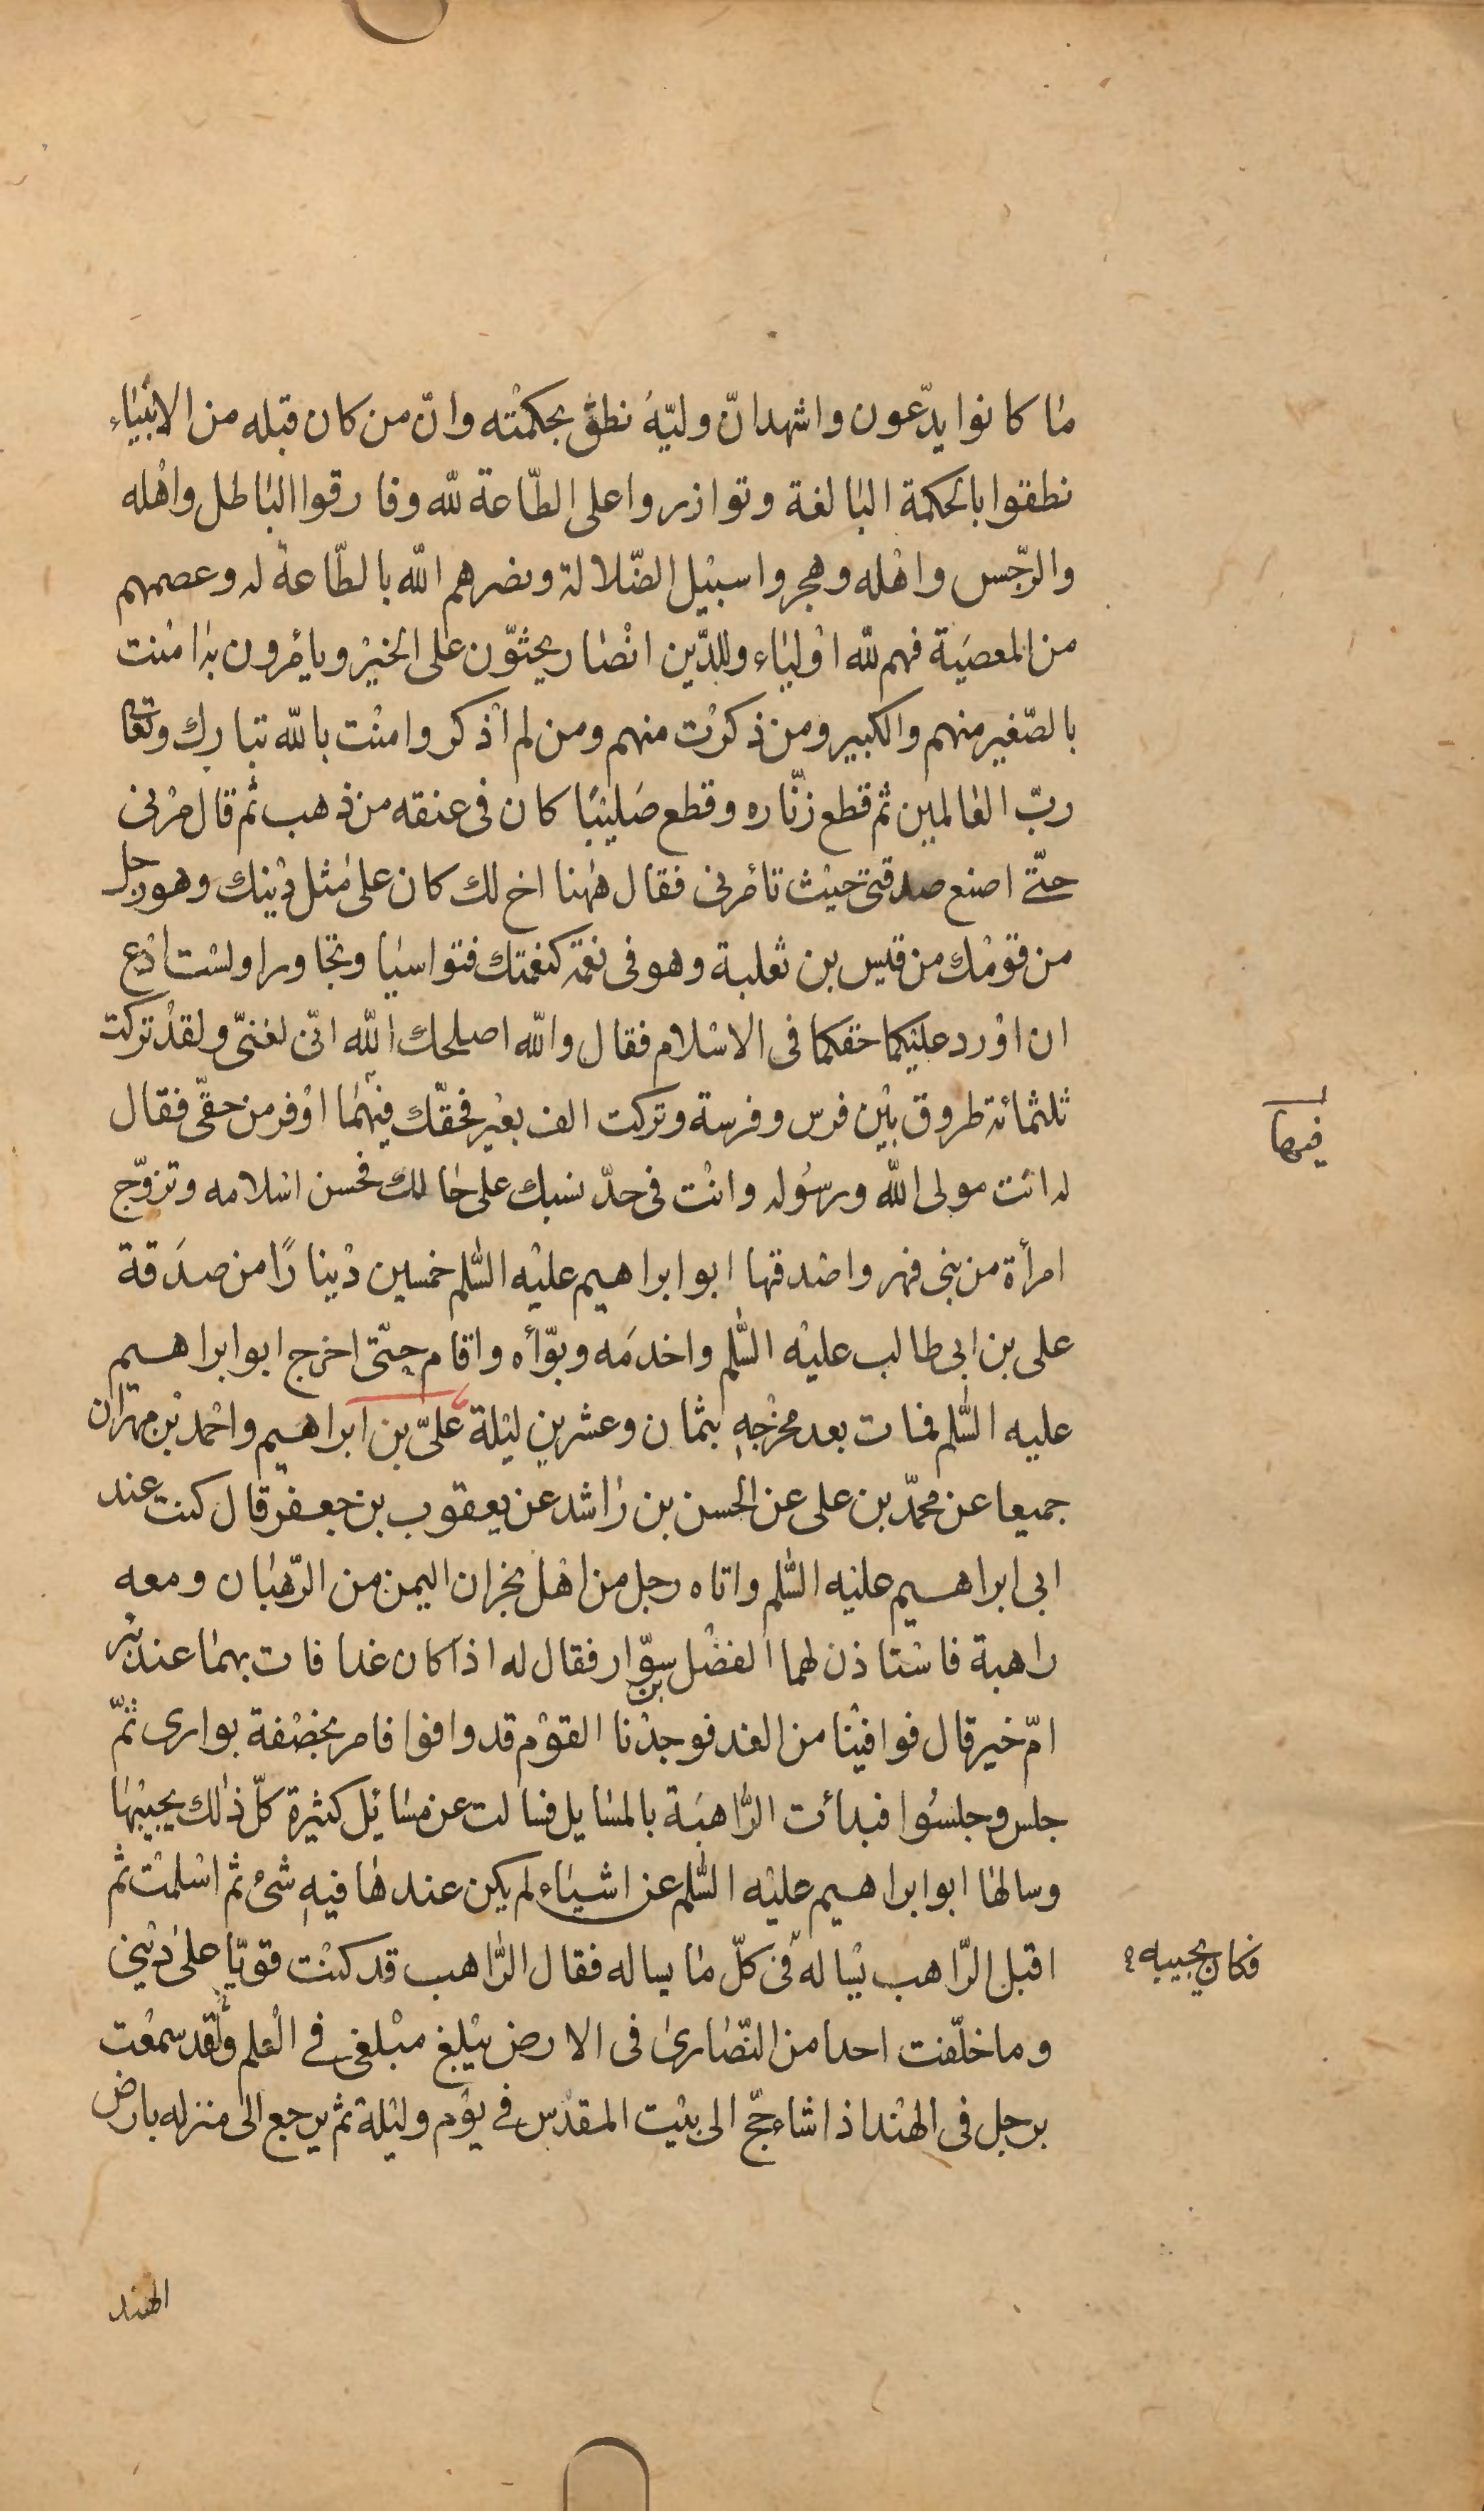 ما كانوا يدّعون واشهد انّ وليّه نطق بحكمته وانّ من كان قبله من الانبياء
نطقوا بالحكمة البالغة وتوازروا على الطّاعة للّه وفارقوا الباطل واهله
والرّجس واهله وهجروا سبيل الضّلالة ونصرهم اللّه بالطّاعة له وعصمهم
من المعصية فهم للّه اولياء وللدّين انصار يحثوّن على الخير ويأمرون به امنت
بالصّغير منهم والكبير ومن ذكرت منهم ومن لم اذكر وامنت باللّه تبارك وتعالى
ربّ العالمين ثم قطع زنّاره وقطع صليبًا كان فى عنقه من ذهب ثم قال مرنى
حتّى اصنع صدقتى حيث تأمرنى فقال ههنا اخ لك كان على مثل دينك وهو رجل
من قومك من قيس بن ثعلبة وهو فى نعمة كنعمتك فتواسيا وتجاورا ولست ادع
ان اورد عليكما حقكما فى الاسلام فقال واللّه اصلحك اللّه انّى لغنىّ ولقد تركت
ثلثمائة طروق بين فرس وفرسة وتركت الف بعير فحقّك فيهما اوفر من حقّى فقال
له انت مولى اللّه ورسوله وانت فى حدّ نسبك على حالك فحسن اسلامه وتزوّج
امرأة من بنى فهر واصدقها ابو ابراهيم عليه السّلم خمسين دينارًا من صدقة
على بن ابى طالب عليه السّلم واخدمه وبوّأه واقام حتّى اخرج ابو ابراهيم
عليه السّلم فمات بعد مخرجه بثمان وعشرين ليلة علىّ بن ابراهيم واحمد بن مهران
جميعا عن محمّد بن على عن الحسن بن راشد عن يعقوب بن جعفر قال كنت عند
ابى ابراهيم عليه السّلم واتاه رجل من اهل نجران اليمن من الرّهبان ومعه
راهبة فاستاذن لهما الفضل بن سوّار فقال له اذا كان غدا فات بهما عند بئر
امّ خير قال فوافينا من الغد فوجدنا القوم قد وافوا فامر بخصفة بوارى ثمّ
جلس وجلسوا فبدأت الرّاهبة بالمسايل فسالت عن مسائل كثيرة كلّ ذلك يجيبها
وسالها ابو ابراهيم عليه السّلم عن اشياء لم يكن عندها فيه شئ ثم اسلمت ثم
اقبل الرّاهب يساله فى كلّ ما يساله فقال الرّاهب قد كنت قويّا على دينى
وما خلّفت احدا من النّصارى فى الارض يبلغ مبلغى فى العلم ولقد سمعت
برجل فى الهند اذا شاء حجّ الى بيت المقدس فى يوم وليلة ثم يرجع الى منزله بارض
الهند
فيها
فكان يجيبه